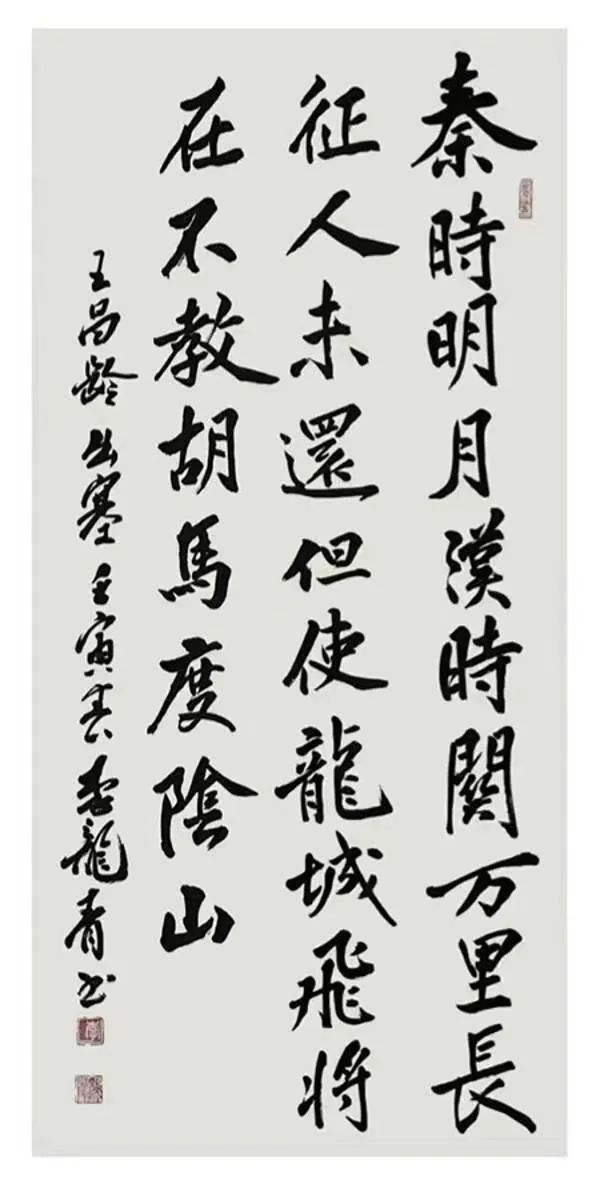 秦時明月漢時關万里長
征人未還但使龍城飛将
在不教胡馬度陰山
王昌齡出塞壬寅春李龍青书